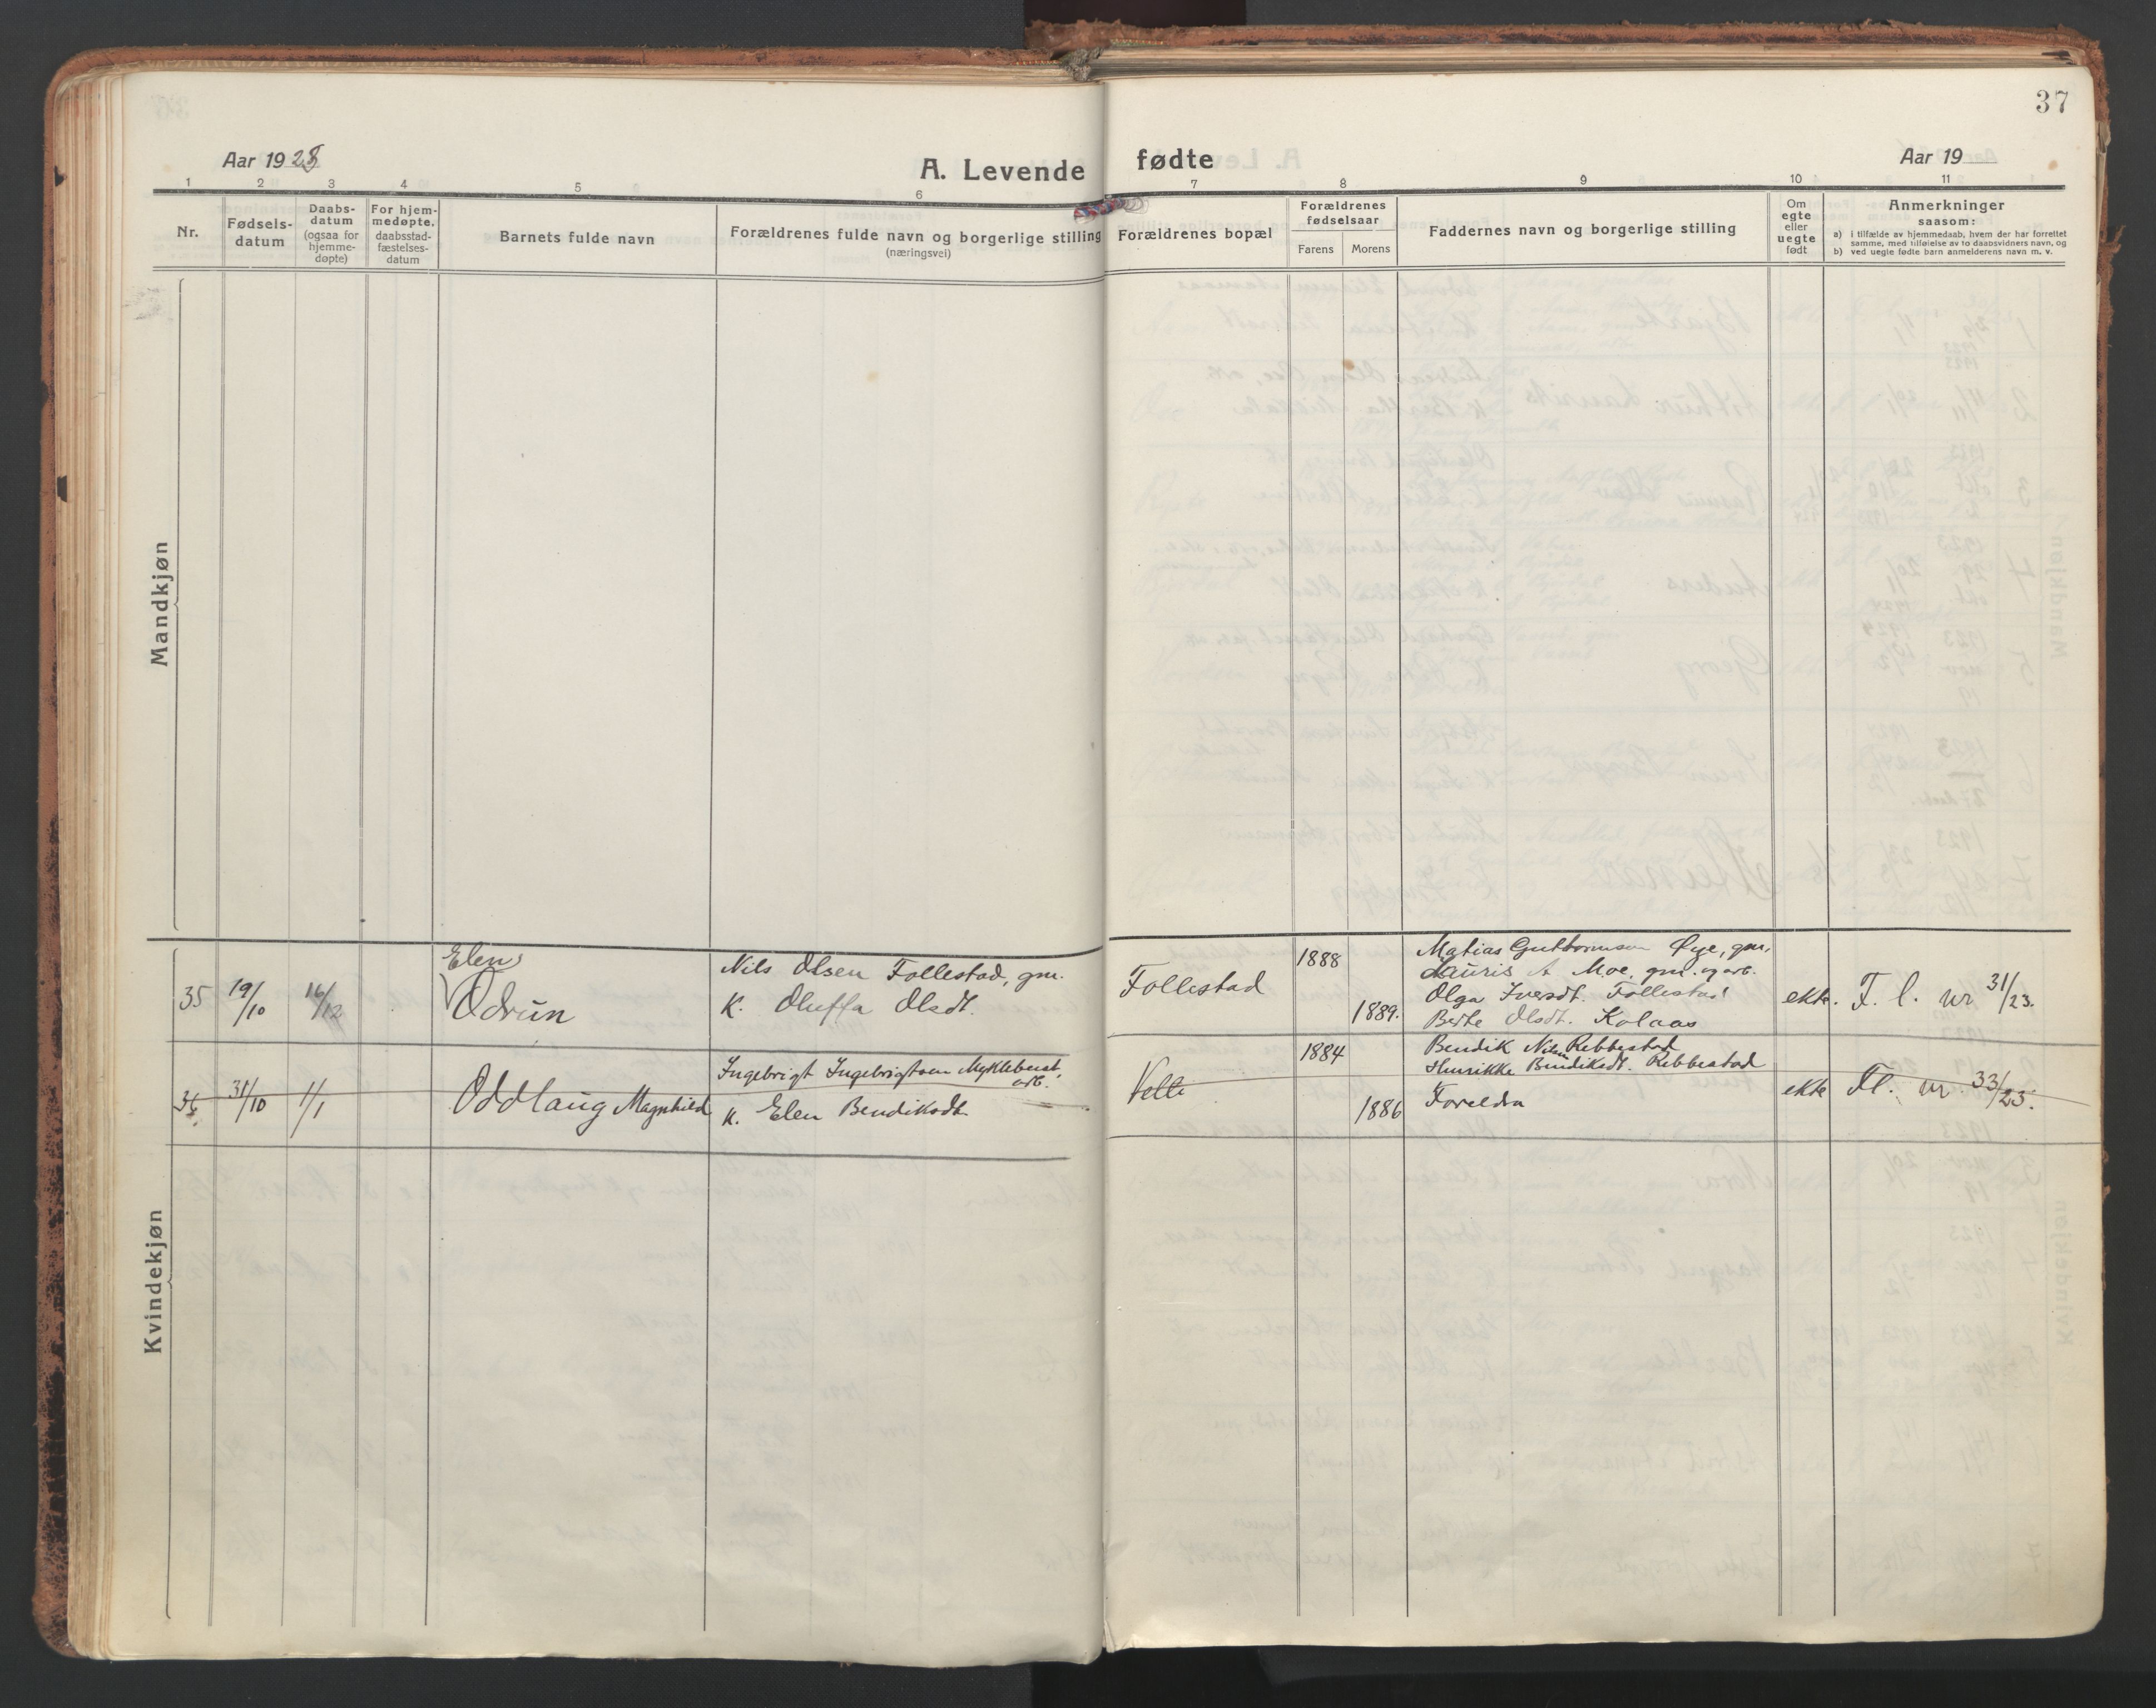 37
Aar 1923
A. Levende
fødte
Aar 19
1 2 3 4 5 6 7 8 9 10 11
Nr.
Fødsels-
datum
Daabs-
datum
(ogsaa for
hjemme-
døpte)
For hjem-
medøpte,
daabsstad-
fæstelses-
datum
Barnets fulde navn
Forældrenes fulde navn og borgerlige stilling
(næringsvei)
Forældrenes bopæl
Forældrenes
fødselsaar
Farens
Morens
Faddernes navn og borgerlige stilling
Om
egte
eller
uegte
født
Anmerkninger
saasom:
a) i tilfælde av hjemmedaab, hvem der har forrettet
samme, med tilføielse av to daabsvidners navn, og
b) ved uegte fødte barn anmelderens navn m. v.
Mandkjøn
35 19/10 16/12
Elen
Odrun
Nils Olsen Follestad, gm.
K. Oluffa Olsdt.
Follestad
1888
1889.
Matias Guttormsen Øye, gm.
Lauris A Moe, gm. og arb.
Olga Iversdt. Follestad
Berte Olsdt. Kolaas
ekte. F. l. nr 31/23.
36 31/10 1/1
Oddlaug Magnhild
Ingebrigt Ingebrigtsen Myklebust,
arb.
K. Elen Bendiksdt.
Velle
1884
1886
Bendik Nilsen Ribbestad
Henrikke Bendiksdt. Ribbestad
Foreldra
ekte Fl. nr 33/23.
Kvindekjøn